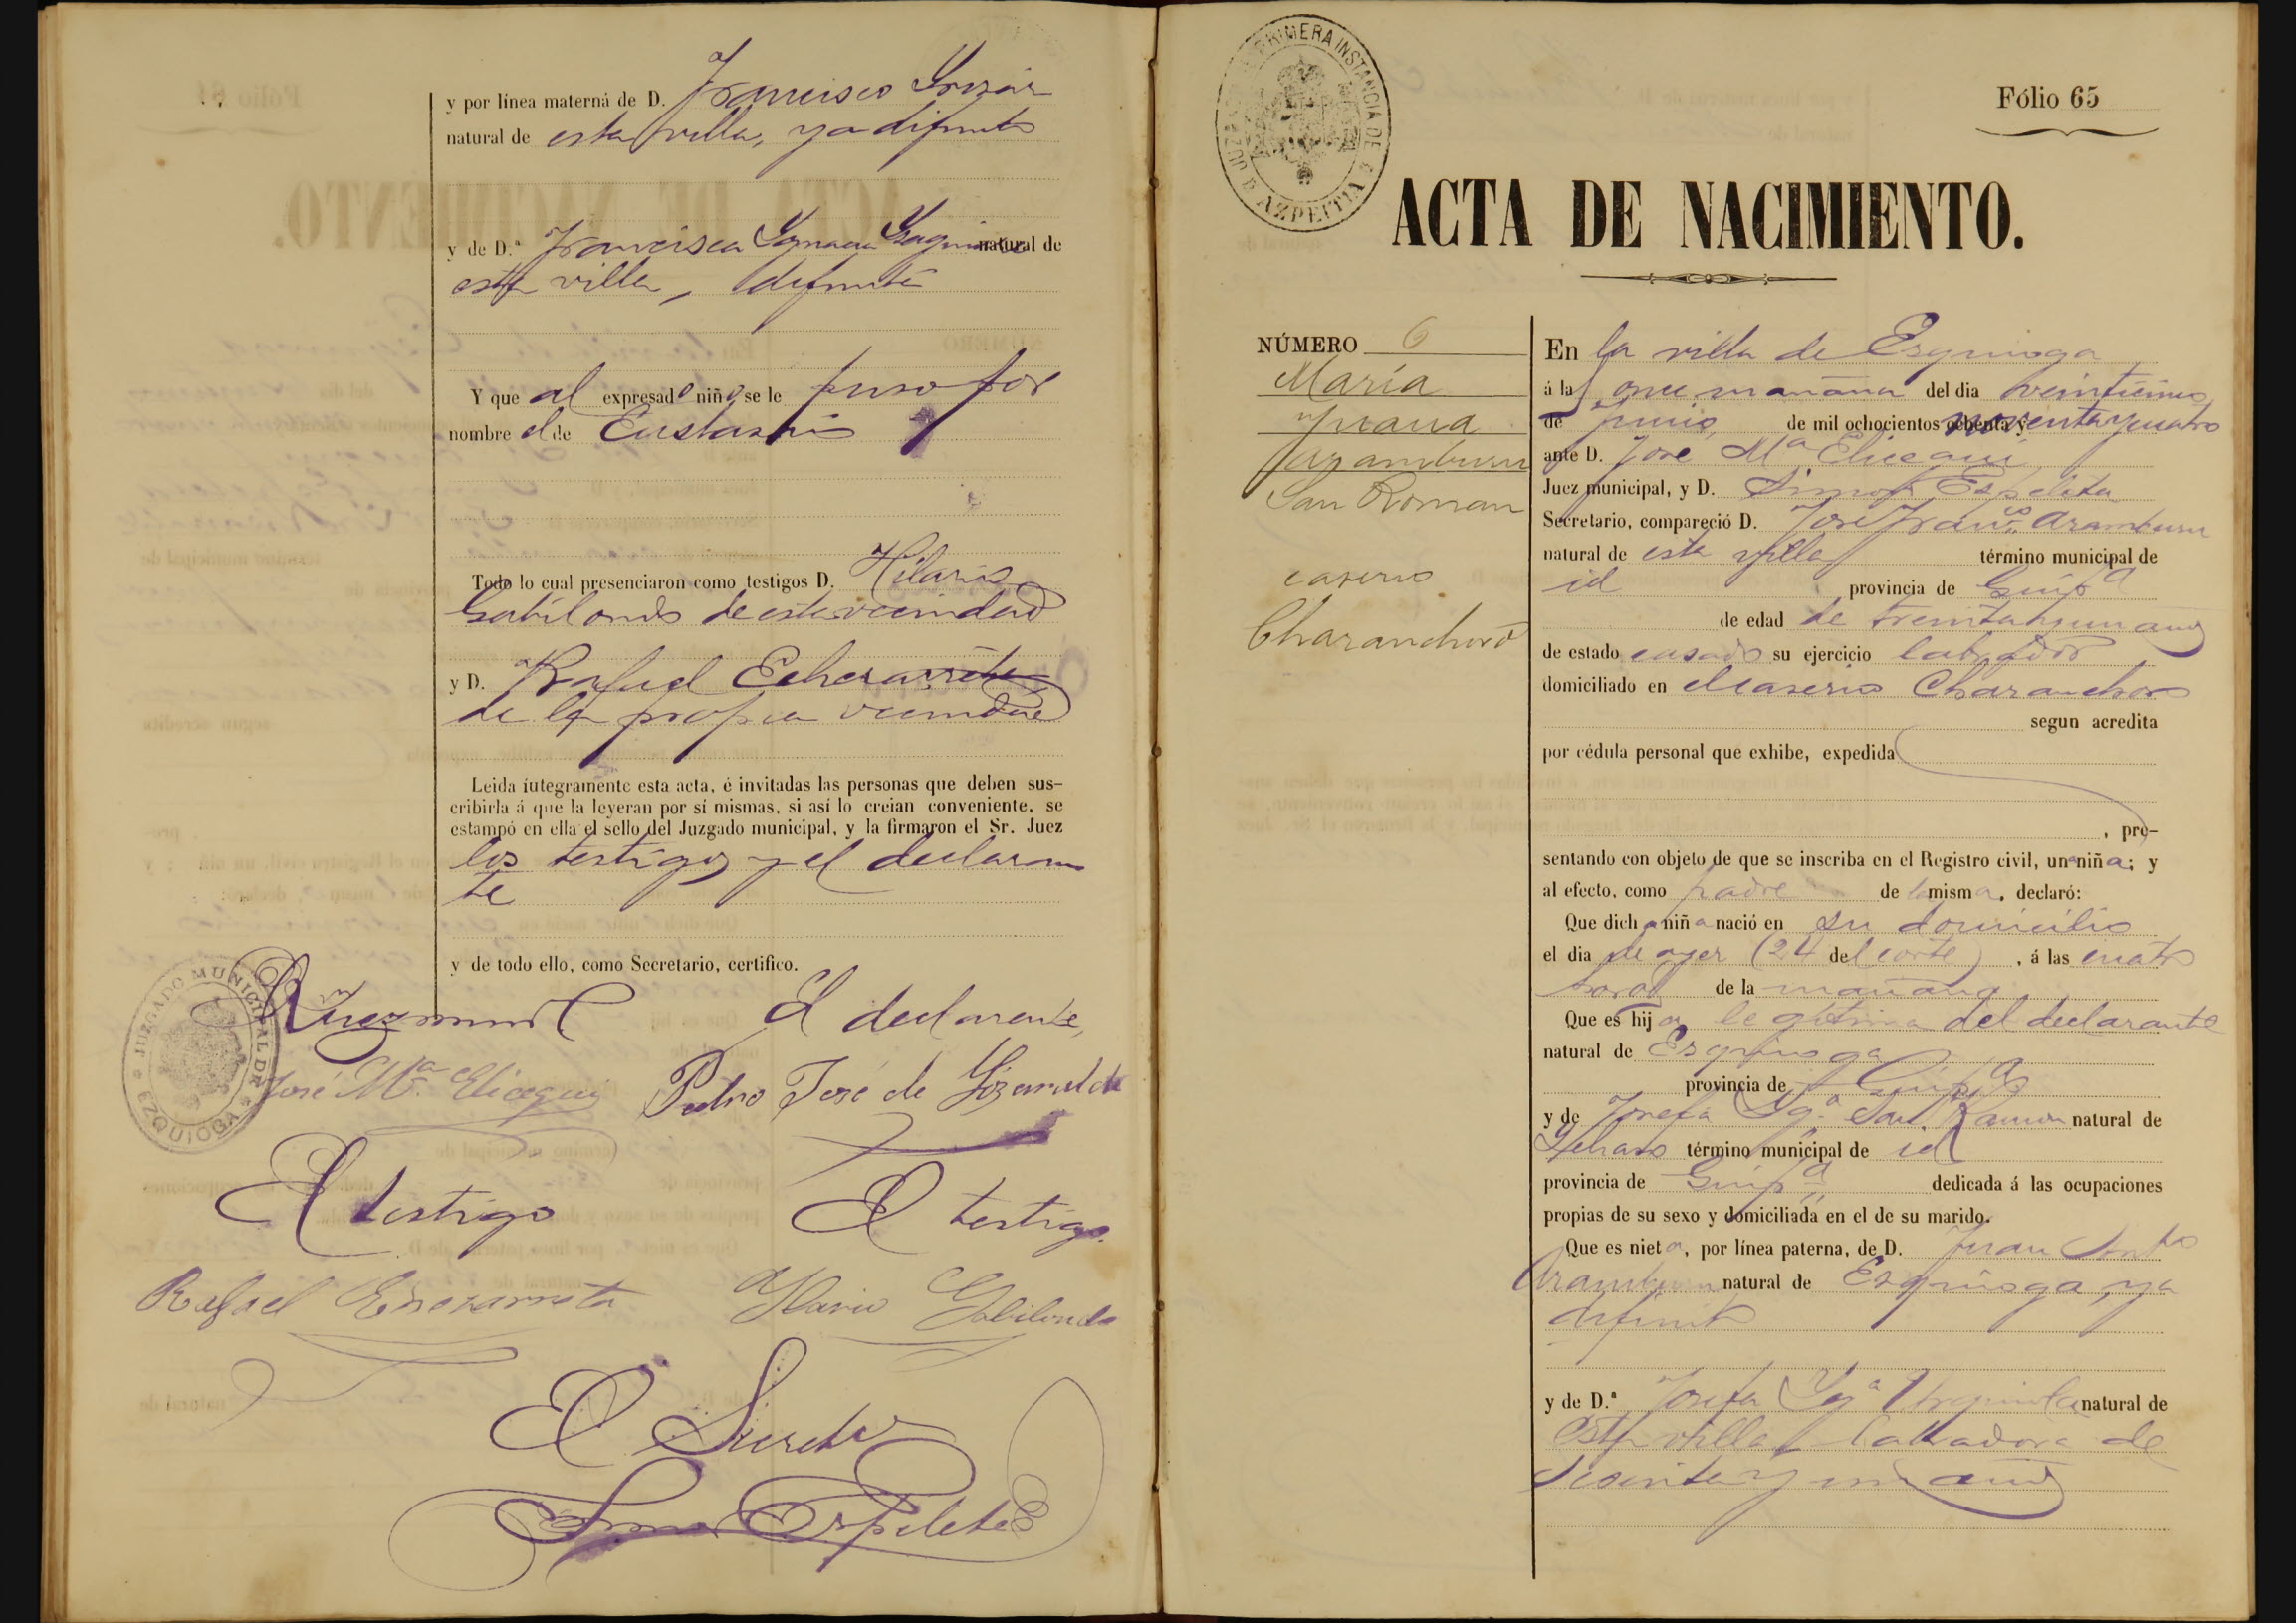 y por línea materna de D. Francisco
natural de esta villa, ya difunto
y de D.ª Francisca Ignacia natural de
esta villa, difunta
Y que al expresado niño se le puso por
nombre el de Eustasio
Todo lo cual presenciaron como testigos D. Hilario
Gabilondo de esta vecindad
y D. Rafael Echezarreta
de la propia vecindad
Leida íntegramente esta acta, é invitadas las personas que deben sus-
cribirla á que la leyeran por sí mismas, si así lo creian conveniente, se
estampó en ella el sello del Juzgado municipal, y la firmaron el Sr. Juez
los testigos y el declaran
te
y de todo ello, como Secretario, certifico.
JUZGADO MUNICIPAL DE EZQUIOGA
El declarante,
José M.ª Elicegui
Pedro José de Lizarralde
El testigo
El testigo
Rafael Echezarreta
Ylario Gabilondo
El Secreto
Simon Ezpeleta
JUZGADO DE PRIMERA INSTANCIA DE AZPEITIA
Fólio 65
ACTA DE NACIMIENTO.
NÚMERO 6
María
Juana
Aramburu
San Roman
caserio
Charanchoro
En la villa de Ezquioga
á las once mañana del dia veinticinco
de Junio, de mil ochocientos noventa y cuatro
ante D. José Mª Elicegui
Juez municipal, y D. Simon Espeleta
Secretario, compareció D. José Franco Aramburu
natural de esta villa término municipal de
id provincia de Guipª
de edad de treinta y un años
de estado casado su ejercicio labrador
domiciliado en el caserio Charanchoro
segun acredita
por cédula personal que exhibe, expedida
, pre-
sentando con objeto de que se inscriba en el Registro civil, una niña; y
al efecto, como padre de la misma, declaró:
Que dicha niña nació en su domicilio
el dia de ayer (24 del corte), á las cuatro
horas de la mañana
Que es hija legitima del declarante
natural de Ezquioga
provincia de Guipª
y de Josefa Igª San Roman natural de
término municipal de id
provincia de Guipª dedicada á las ocupaciones
propias de su sexo y domiciliada en el de su marido.
Que es nieta, por línea paterna, de D. Juan
Aramburu natural de Ezquioga, ya
difunto
y de D.ª Josefa Igª Urquiola natural de
esta villa labradora de
sesenta y un años